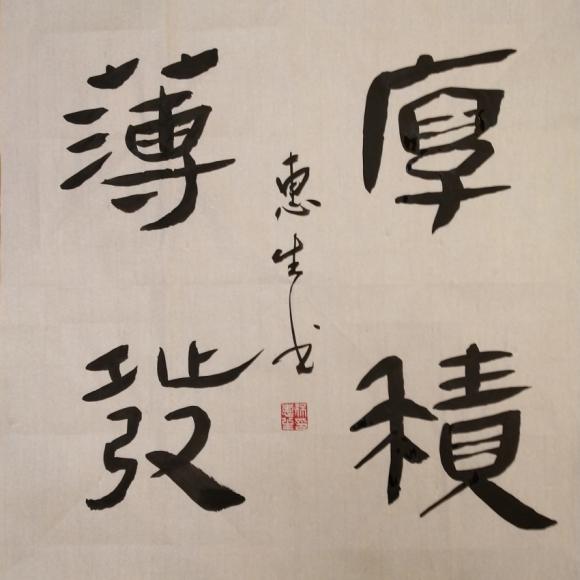 厚積
薄發
惠生书